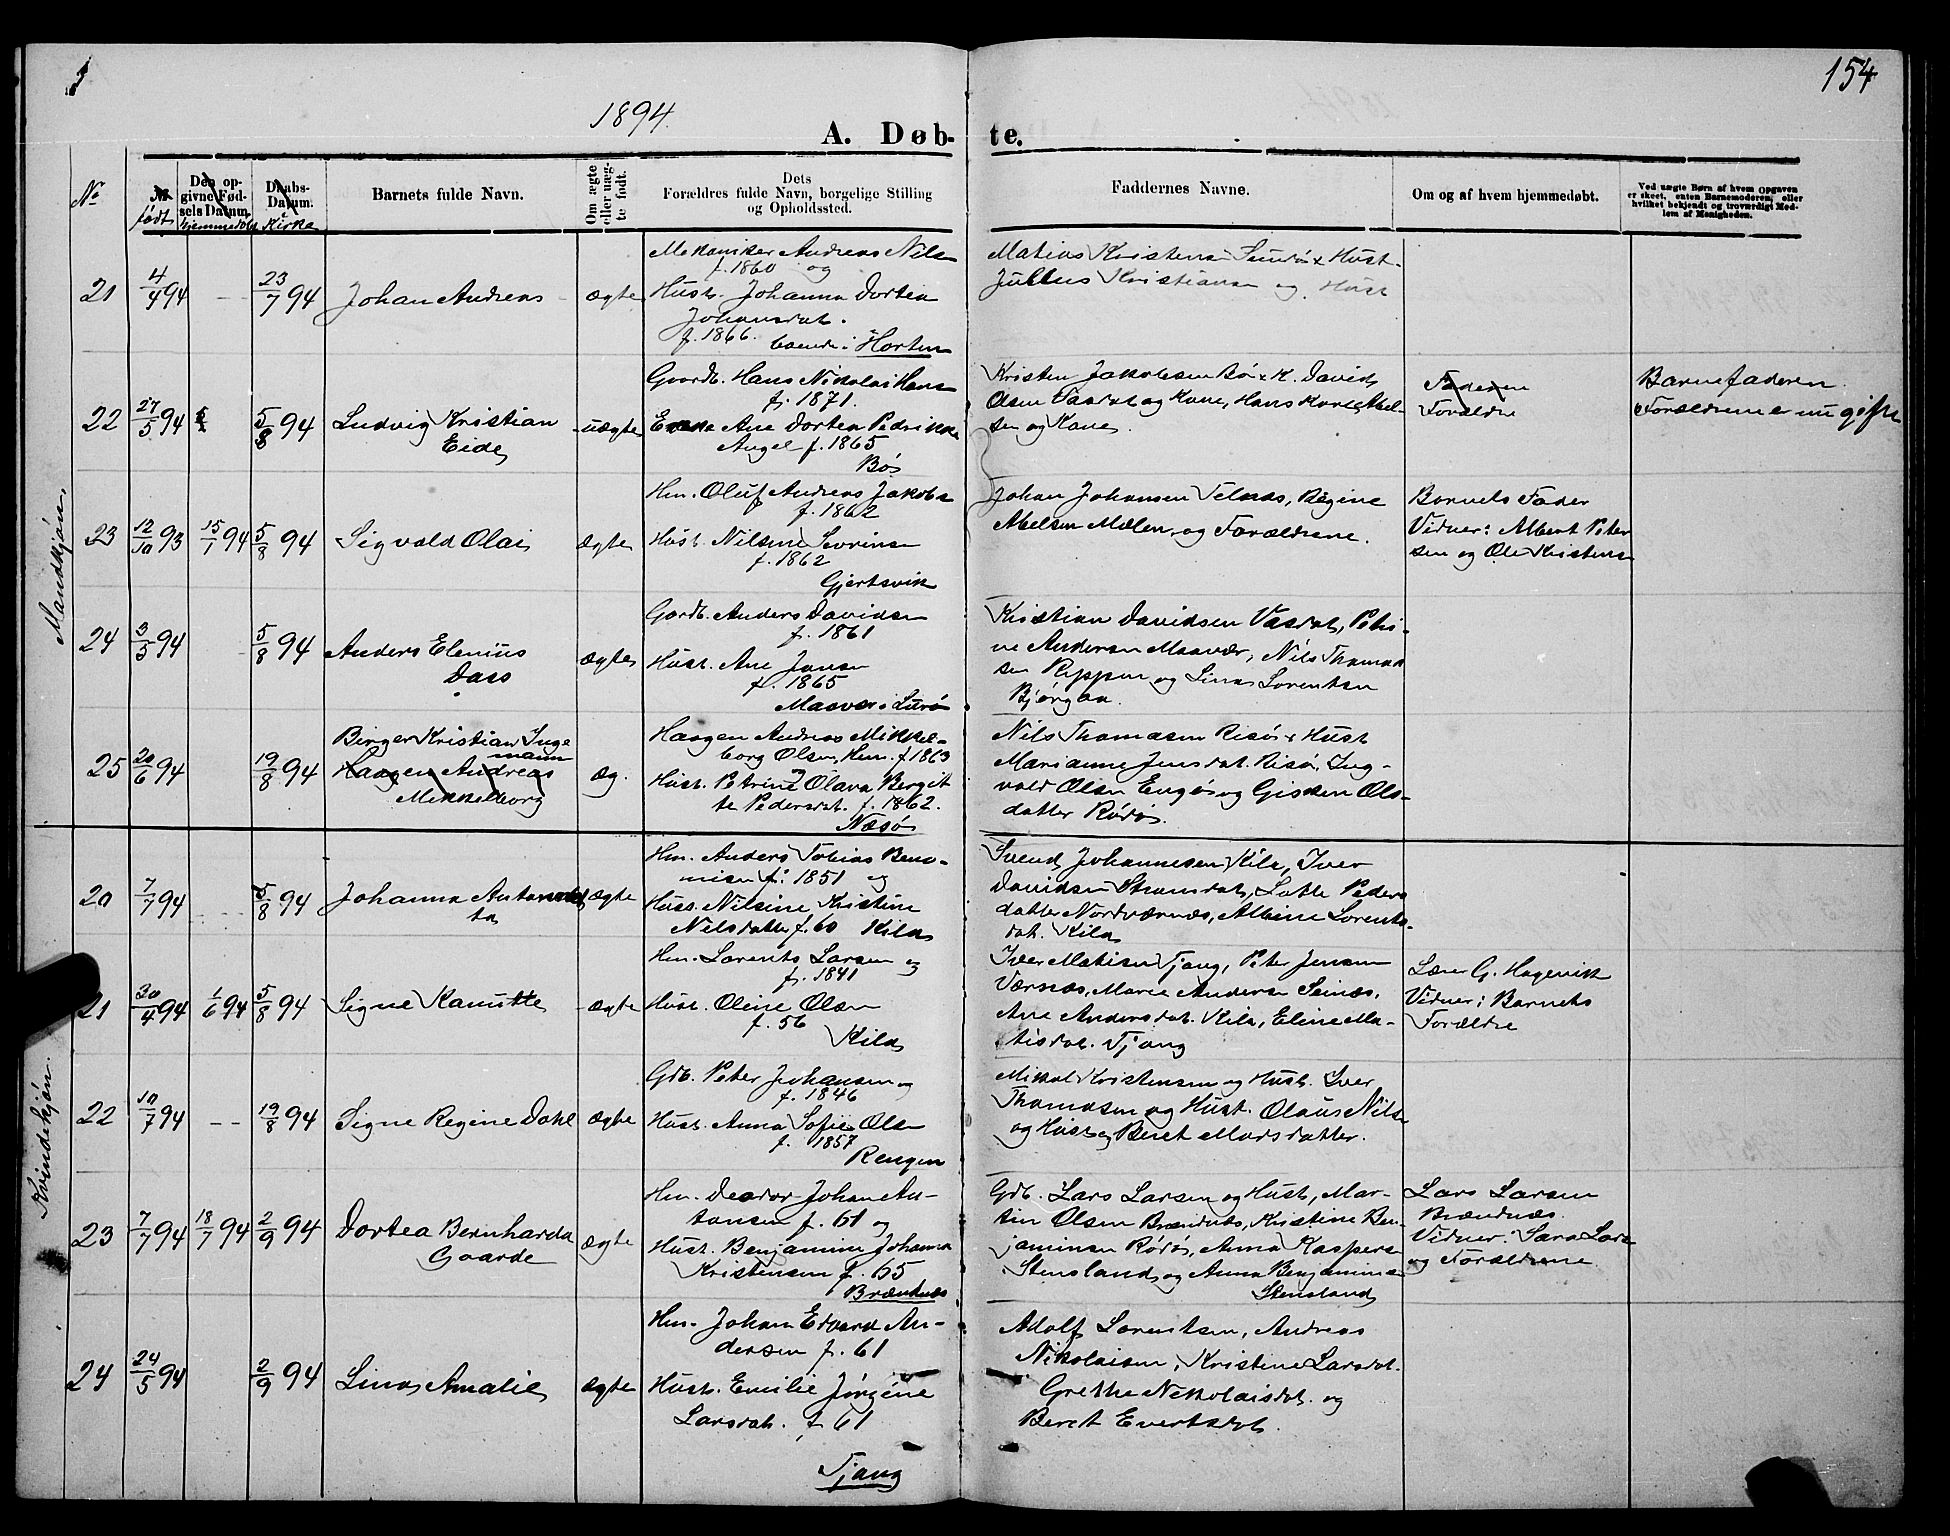 154
1894.
A. Døb-
te.
No
født
Den opgivne Fødsels Datum.
hjemmedøbt
Daabs-Datum.
i Kirke
Barnets fulde Navn.
Om ægte eller uægte født.
Dets
Forældres fulde Navn, borgelige Stilling
og Opholdssted.
Faddernes Navne.
Om og af hvem hjemmedøbt.
Ved uægte Børn af hvem Opgaven
er skeet, enten Barnemoderen, eller
hvilket bekjendt og troværdigt Med-
lem af Menigheden.
Mandkjøn.
21 4/4 94 -- 23/7 94 Johan Andreas ægte
Mekaniker Andreas Nilsen
f. 1860 og
Hust. Johanna Dortea
Johansdat.
f. 1866. boende i Horten
Matias Kristensen Sundø & Hust.
Julius Kristiansen og Hust
22 27/5 94 5/8 94 Ludvig Kristian
Eide
uægte
Gaardb. Hans Nikolai Hansen
f. 1871.
Enke Ane Dortea Pedrikke
Angel f. 1865
Bø
Kristen Jakobsen Bø & K. David
Olsen Vasdal og Kone, Hans Karl Abel-
sen og Kone.
Faderen
Forældre
Barnefaderen.
Forældrene er nu gifte
23 12/10 93 15/1 94 5/8 94 Sigvald Olai ægte
Hm. Oluf Andreas Jakobsen
f. 1862
Hust. Nilsine Sevrinsen
f. 1862
Gjertsvik
Johan Johansen Telnes, Regine
Abelsen Mælen og Forældrene.
Barnets Fader
Vidner: Albert Peter
sen og Ole Kristensen
24 3/5 94 5/8 94 Anders Elenius
Dass
ægte
Gardb. Anders Davidsen
f. 1861
Hust. Ane Jansen
f. 1865
Maavær i Lurø
Kristian Davidsen Vasdal, Petri-
ne Andersen Maavær, Nils Thomas
sen Reppen og Lina Lorentsen
Bjørgaa.
25 20/6 94 19/8 94 Birger Kristian Inge
mann
Haagen Andreas
Mikkelborg
æg.
Haagen Andreas Mikkel-
borg Olsen, Hm. f. 1863
Hust. Petrine Olava Bergit
te Pedersdat. f. 1862.
Næsø
Nils Thomasen Risø & Hust
Marianne Jensdat. Risø, Ing-
vald Olsen Engø og Gisken Ols-
datter Rødø.
Kvindekjøn.
20 7/7 94 -- 5/8 94 Johanna Antonet
ta
ægte
Hm. Anders Tobias Beno-
nisen f. 1851 og
Hust. Nilsine Kristine
Nilsdatter f. 60 Kila
Svend Johannesen Kila, Iver
Davidsen Strømdal, Lotte Peders
datter Nordværnes, Albine Lorents-
dat. Kila
21 30/4 94 1/6 94 5/8 94 Signe Kamille ægte
Hm. Lorents Larsen og
f. 1841
Hust. Oline Olsen
f. 56
Kila
Iver Matisen Tjong, Peter Jensen
Værnes, Marie Andersen Seinæs,
Ane Andersdat. Kila, Eline Ma-
tisdat. Tjong
Lærer G. Hagevik
Vidner: Barnets
Forældre
22 10/7 94 -- 19/8 94 Signe Regine Dahl ægte
Gdb. Peter Johansen og
f. 1846
Hust. Anna Sofie Olsen
f. 1857
Rengen
Mikal Kristensen og Hust. Iver
Thomasen og Hust. Olaus Nilsen
og Hust og Beret Morsdatter.
23 7/7 94 18/7 94 2/9 94 Dortea Bernharda
Gaarde
ægte
Hm. Teodor Johan An-
tonsen f. 61 og
Hust. Benjamine Johanna
Kristensen f. 65
Brændnes
Gdb. Lars Larsen og Hust, Mar-
tin Olsen Brændnes, Kristine Ben-
jaminsen Rødø, Anna Kaspersen
Stensland, og Anna Benjaminsen
Stensland
Lars Larsen
Brændnæs.
Vidner: Sara Larsen
og Forældrene.
24 24/5 94 2/9 94 Lina Amalie ægte
Hm. Johan Edvard An-
dersen f. 61
Hust. Emilie Jørgine
Larsdat. f 61
Tjong
Adolf Lorentsen, Andreas
Nikolaisen, Kristine Larsdat.
Grethe Nikolaisdat. og
Beret Evertsdat.